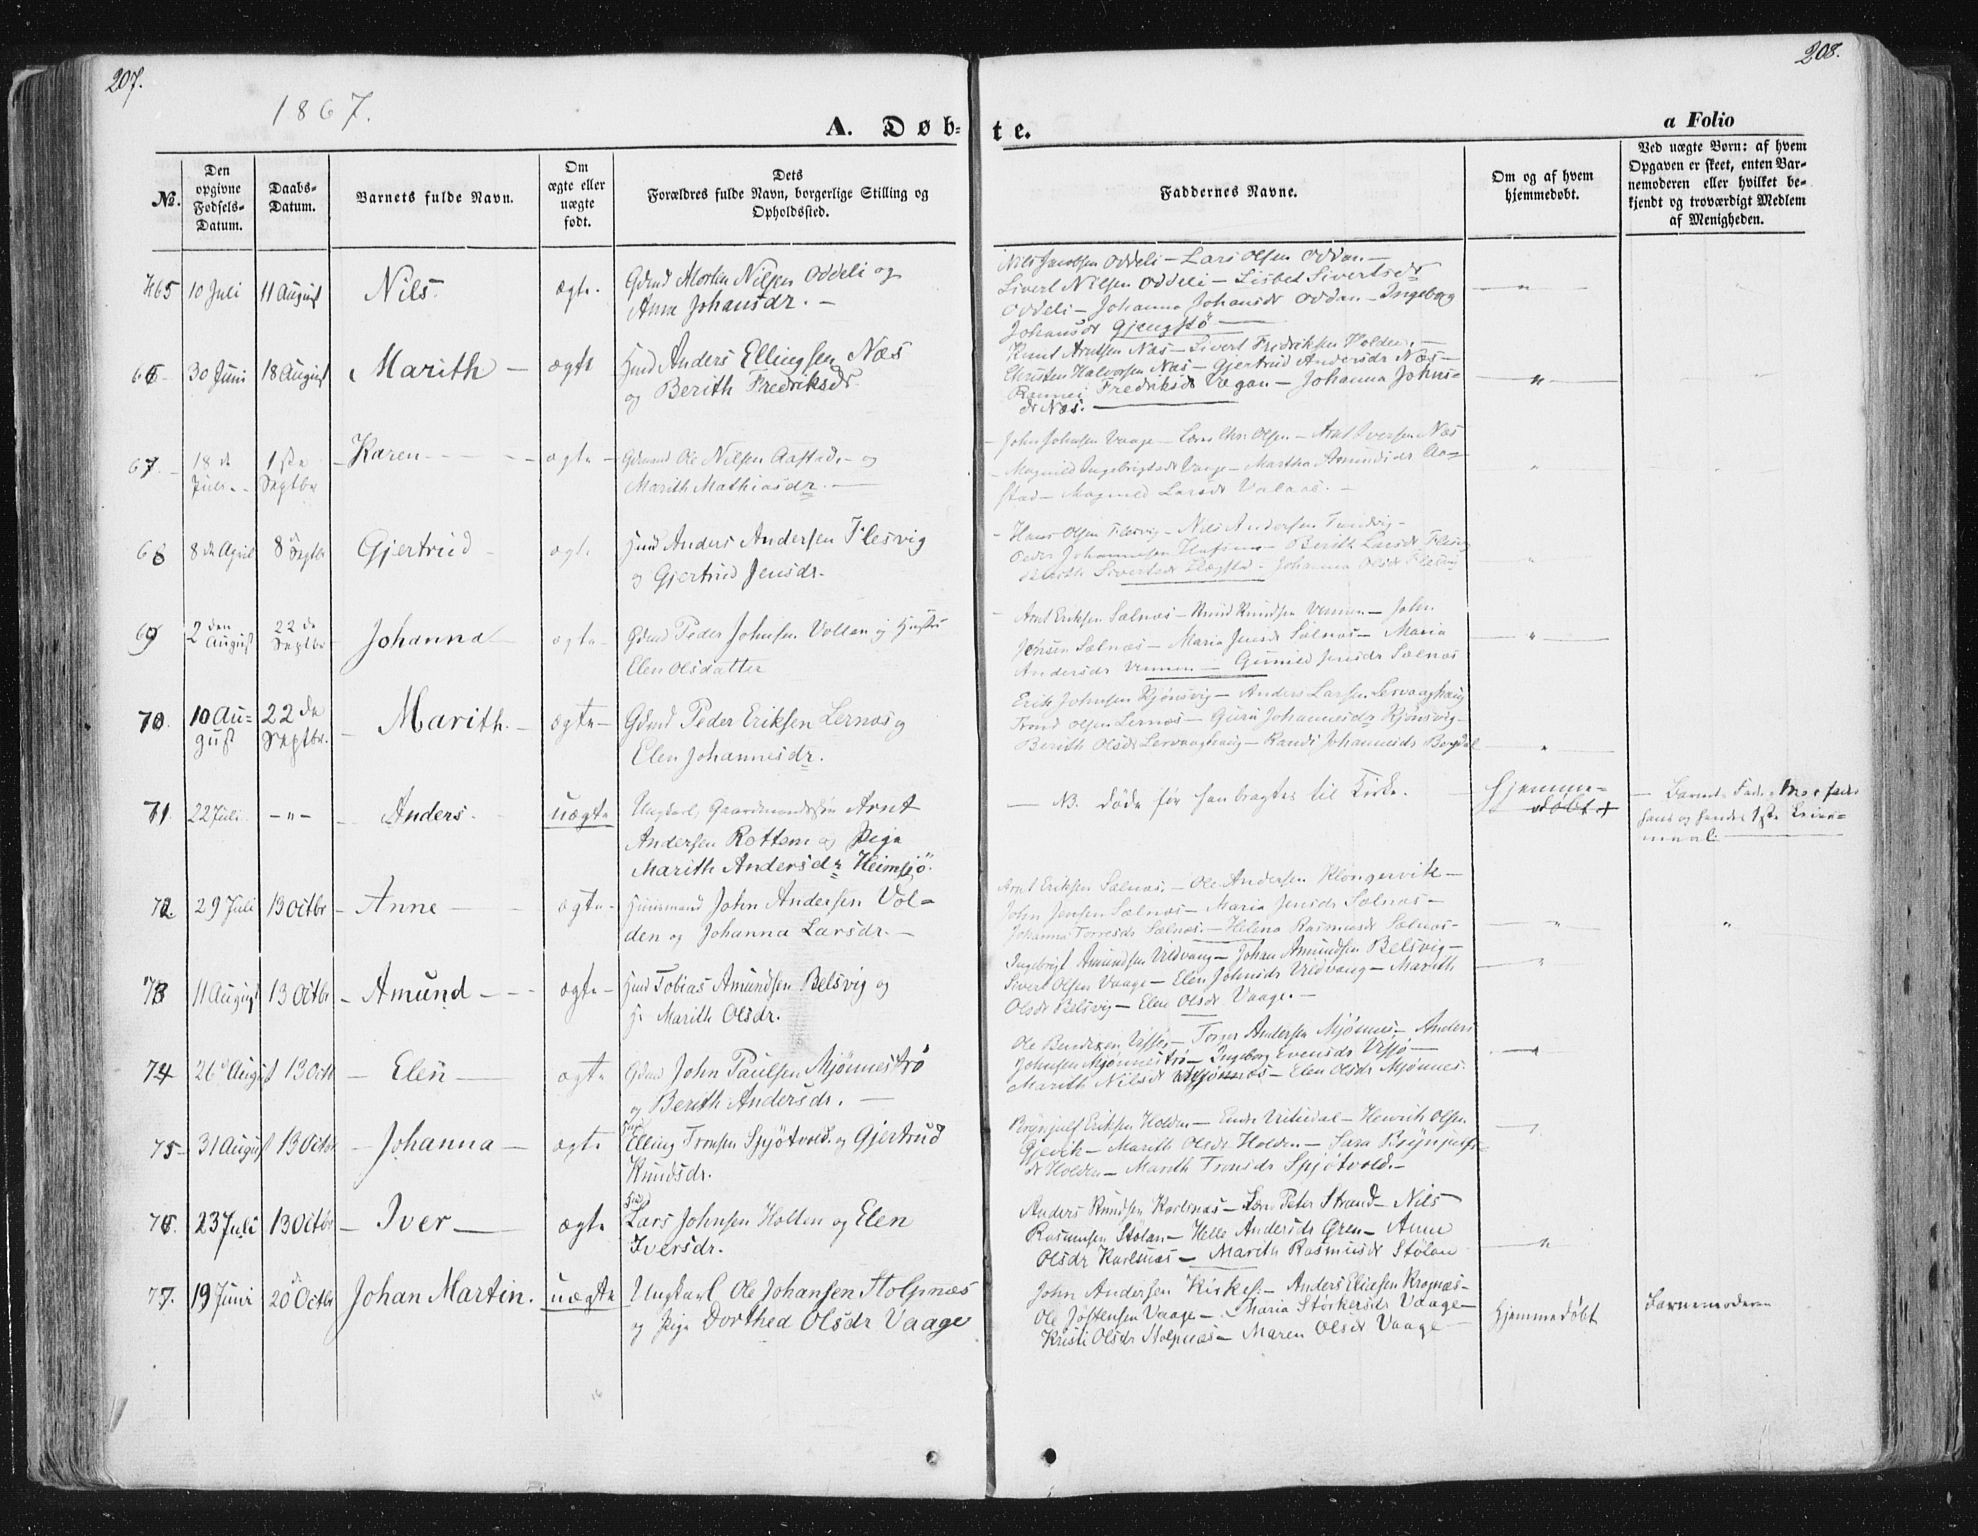 207.
208.
1867.
A. Døb-
te.
a Folio
№.
Den opgivne Fødsels-Datum.
Daabs-Datum.
Barnets fulde Navn.
Om ægte eller uægte født.
Dets Forældres fulde Navn, borgerlige Stilling og Opholdssted.
Faddernes Navne.
Om og af hvem hjemmedøbt.
Ved uægte Børn: af hvem Opgaven er skeet, enten Barnemoderen eller hvilket bekjendt og troværdigt Medlem af Menigheden.
465 10 Juli 11 August Nils. ægte. Gdmd Morten Nilsen Oddeli og
Anne Johansdr. —
Nils Jacobsen Oddeli — Lars Olsen Oddan —
Sivert Nilsen Oddeli — Lisbet Sivertsdr
Oddeli — Johanna Johansdr Oddan — Ingeborg
Johansdr Gjengstö —
66 30 Juni 18 August Marith — ægte Hmd Anders Ellingsen Næs
og Berith Fredriksdr
Knut Arntsen Næs — Sivert Fredriksen Volden. —
Christen Halvorsen Næs — Gjertrud Andersdr Næs —
Fredriksdr Vægan — Johanna Johns-
dr Næs. —
67 18 de Juli 1ste Septbr Karen ægte Gdmand Ole Nilsen Aastad og
Marith Mathiasdr. —
John Johnsen Vaage — Lars Chr. Olsen — Arnt Iversen Næs
Magnild Ingebrigtsdr Vaage — Martha Amundsdr Aa-
stad — Magnild Larsdr —
68 8 de April 8 Septbr Gjertrud ægte Hmd Anders Andersen Flesvig
og Gjertrud Jensdr.
Hans Olsen Flesvig — Nils Andersen —
Peder Johannesen — Berith Larsdr
Sivertsdr — Johanna Olsdr Flesvig
69 2 den August 22 de Septbr Johanna ægte Gdmd Peder Johnsen Vollan og Hustru
Elen Olsdatter
Arnt Eriksen Sælnæs — Knud Knudsen Vennen — John
Jensen Sælnæs — Maria Jensdr Sælnæs — Maria
Andersdr Vennen — Gunild Jensdr Sælnæs
70. 10 August 22 de Septbr. Marith. ægte Gdmd Peder Eriksen Lernæs og
Elen Johannesdr.
Erik Johnsen Kjönsvig — Anders Larsen Lervaaghaug
Trond Olsen Lernæs — Guru Johannesdr Kjönsvig —
Berith Olsdr Lervaaghaug — Randi Johannesdr
71. 22 Juli — " — Anders. uægte Ungkarl, Gaardmandssön Arnt
Andersen Rottem og Pige
Marith Andersdr Heimsjö.
— NB. döde för han bragtes til Kirke.
Hjemme-
døbt
hans og hendes 1ste Leier-
maal.
72. 29 Juli 13 Octbr Anne ægte Huusmand John Andersen Vol-
den og Johanna Larsdr. —
Arnt Eriksen Sælnæs. — Ole Andersen Klöngervik —
John Jensen Sælnæs — Maria Jensdr Sælnæs —
Johanna Torresdr Sælnæs. — Helena Rasmusdr Sælnæs —
73 11 August 13 Octbr Amund ægte Hmd Tobias Amundsen Belsvig og
H. Marith Olsdr.
Ingebrigt Amundsen Vildvang — Johan Amundsen Belsvig —
Sivert Olsen Vaage — Elen Johnsdr Vildvang — Marith
Olsdr Belsvig — Elen Olsdr Vaage. —
74 26 August 13 Octb Elen ægte Gdmd John Paulsen Mjönneströ
og Berith Andersdr. —
Ole Bendixen — Torger Andersen Mjönnes — Anders
Johnsen Mjönneströ — Ingeborg Evensdr —
Marith Nilsdr Mjönnes — Elen Olsdr Mjönnes.
75 31 August 13 Octbr Johanna ægte Elling Tronsen Spjötvold og Gjertrud
Knudsdr.
Brynjulf Eriksen Holden — Endre — Henrik Olsen
Gjevik — Marith Olsdr Holden — Sara Brynjulfs-
dr Holden — Marith Tronsdr Spjötvold. —
76. 23 Juli 13 Octbr Iver ægte Lars Johnsen Holten og Elen
Iversdr.
Anders Knudsen Karlsnæs — Peter Strand — Nils
Rasmusen Stölan — Helle Andersdr Gren — Anne
Olsdr Karlsnæs — Maritha Rasmusdr Stölan
77. 19 Juni 20 Octbr Johan Martin. uægte Ungkarl Ole Johansen Stolpnæs
og Pige Dorthea Olsdr Vaage
John Andersen — Anders Eliasen Krognæs —
Ole Jöstensen Vaage — Maria Störkersdr Vaage —
Kristi Olsdr Stolpnæs — Maren Olsdr Vaage
Hjemmedøbt
Barnemoderen